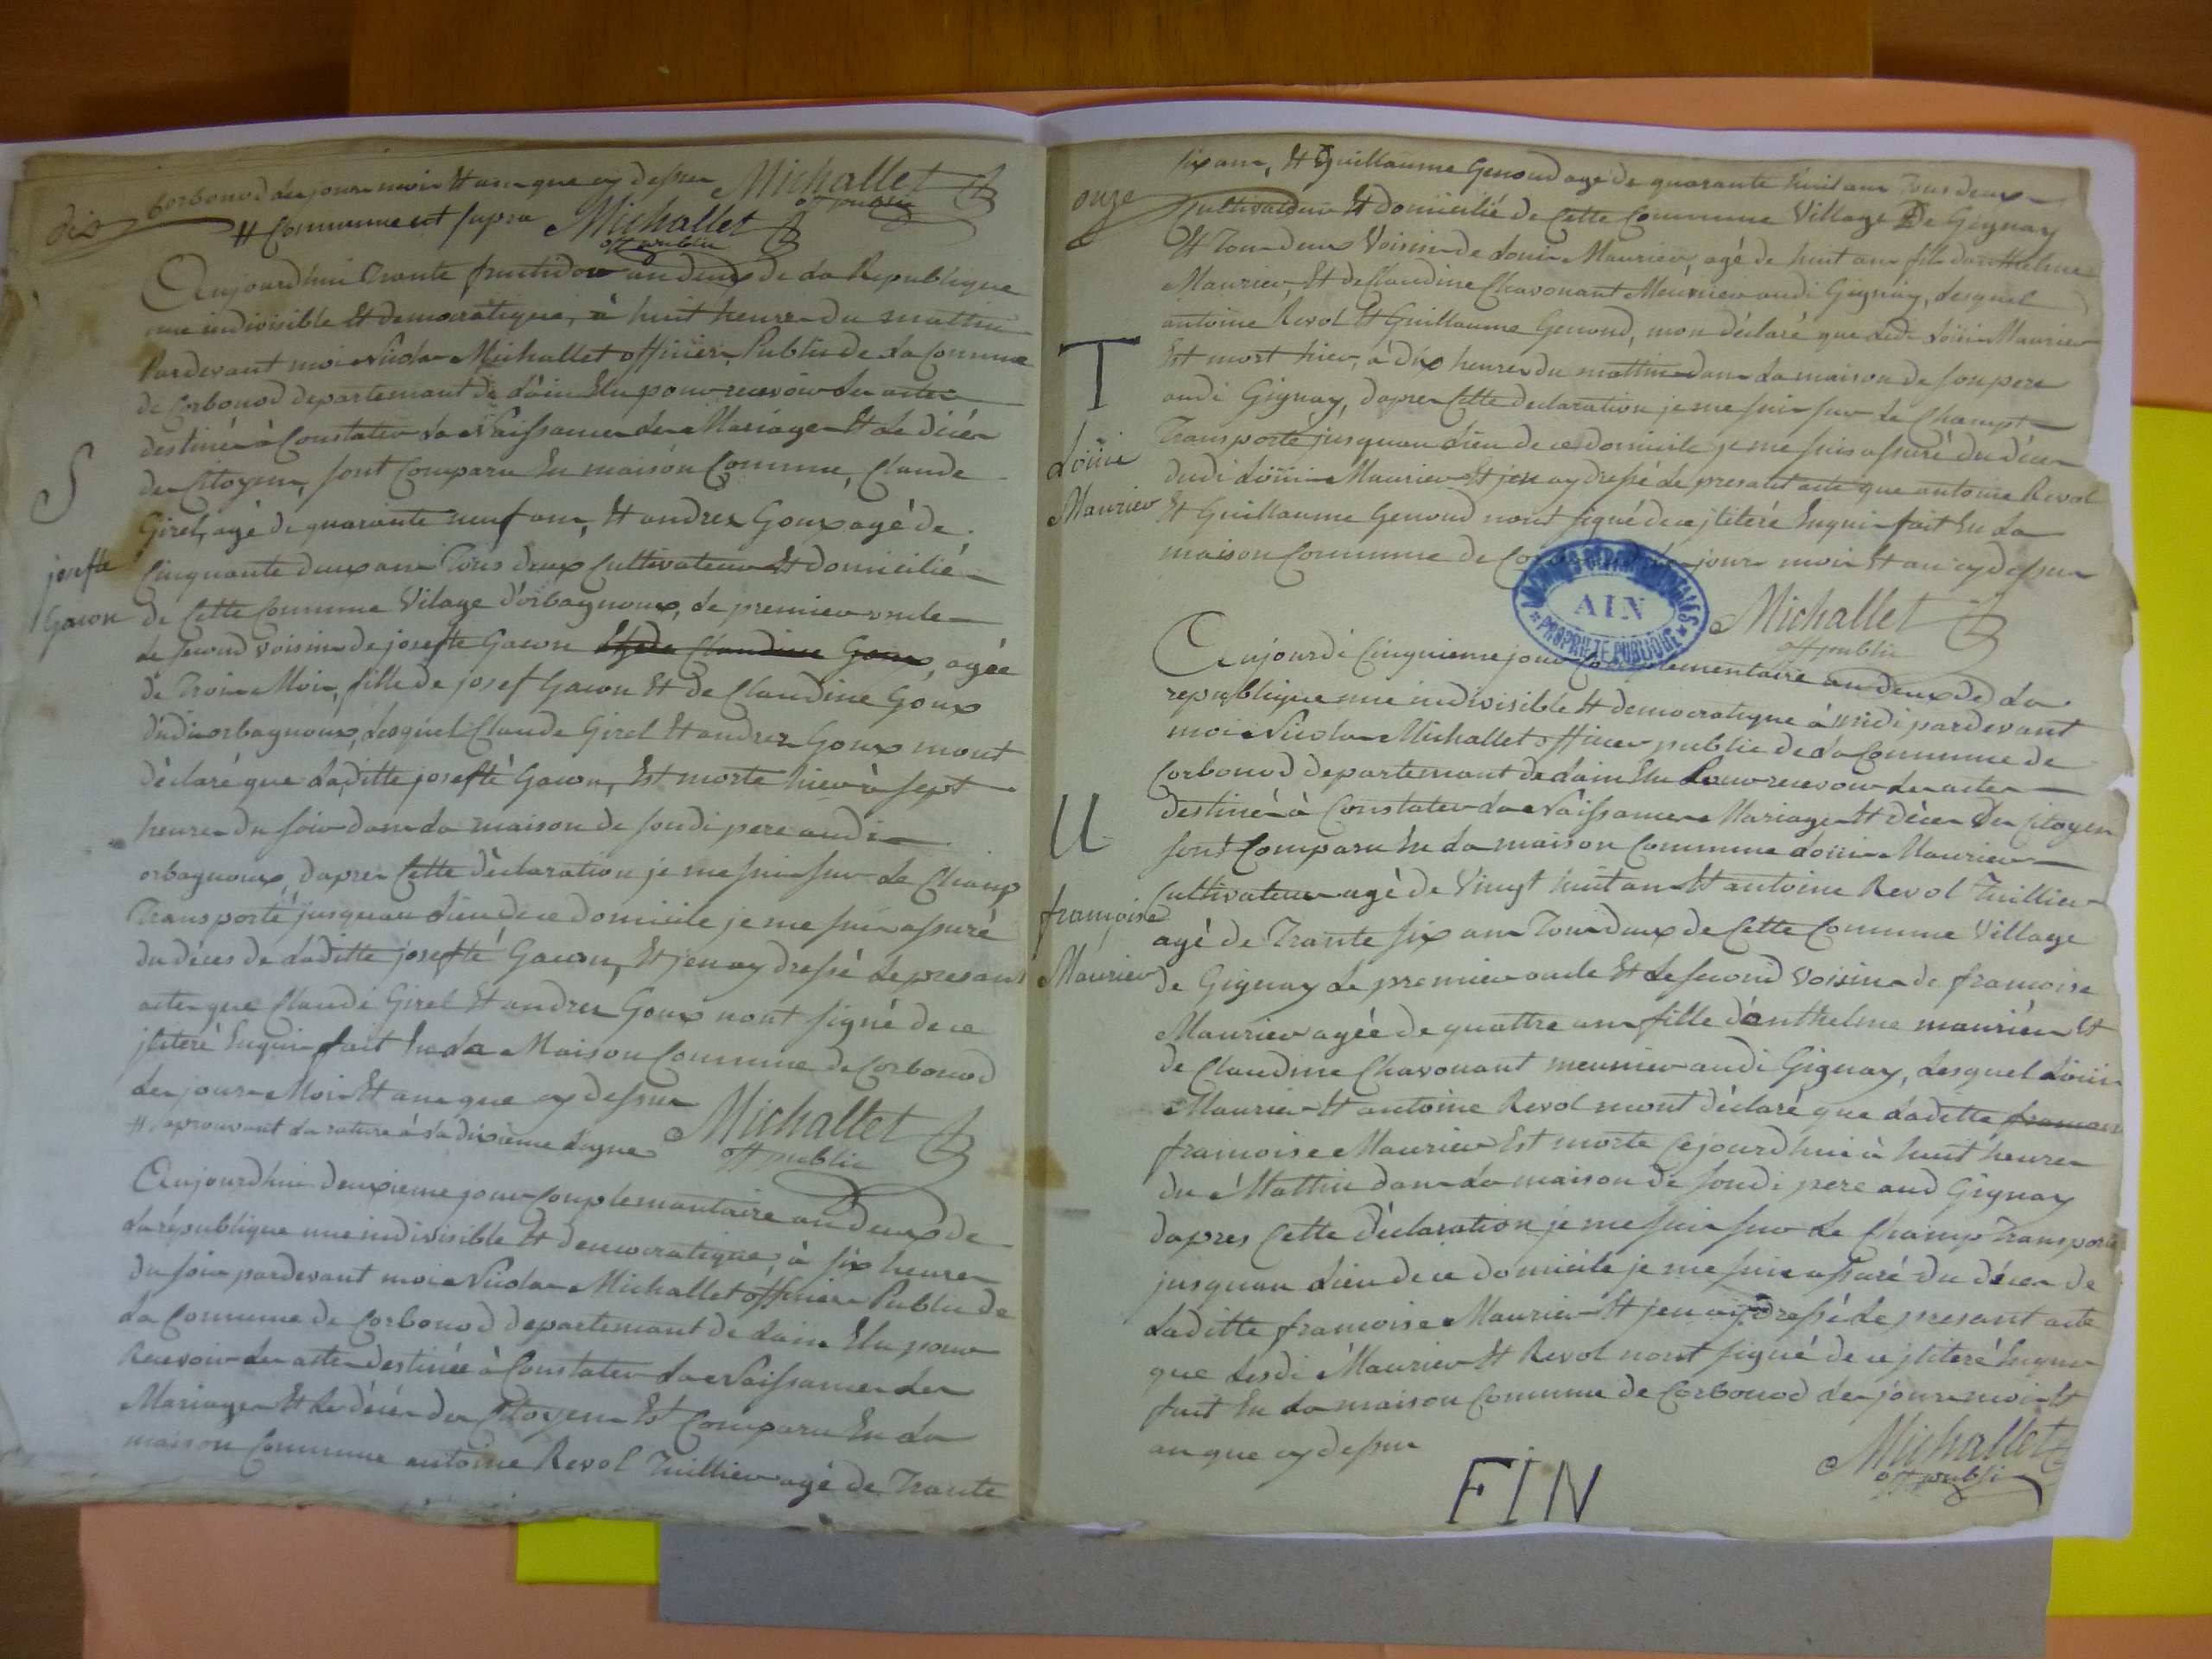 dix
Corbonod les jours mois Et an que cy dessus Michallet
off public
# Commune ut supra Michallet
off public
Aujourdhui Trante fructidor an deux de La Republique
une indivisible Et democratique, à huit heures du mattin
Pardevant moi Nicolas Michallet officier Public de La Commune
de Corbonod departemant de d'ain Elu pour recevoir les actes
destinés à Constater La Naissances des Mariages Et Le décés
des Citoyens, sont Comparu En maison Commune, Claude
Girel, agé de quarante neuf ans, Et andrés Goux agé de
Cinquante deux ans Tous deux Cultivateurs Et domicilié
de Cette Commune Vilage d'orbagnoux, Le premier oncle
Le second voisin de josefte Gacon Et de Claudine Goux, agée
de Trois Mois, fille de josef Gacon Et de Claudine Goux
dudi orbagnoux, Lesquel Claude Girel Et andrés Goux mont
déclaré que Laditte josefté Gacon, Est morte hier à sept
heures du soir dans La maison de sondi pere audi
orbagnoux, daprès Cette déclaration je me suis sur Le Champ
Transporté jusquau Lieu de ce domicile je me suis assuré
du déces de Laditte josefté Gacon, Et jen ay dressé Le presant
acte que Claude Girel Et andrés Goux nont signé de ce
jliteré Enquis fait En La Maison Commune de Corbonod
Les jours Mois Et ans que cy dessus Michallet
# aprouvant La rature à La dixieme Ligne off public
S
josefte
Gacon
Aujourdhui deuxieme jour Complemantaire an deux de
La république une indivisible Et democratique, à six heures
du soir pardevant moi Nicolas Michallet officier Public de
La Commune de Corbonod departemant de Lain Elu pour
Recevoir Les actes destinée à Constater La Naissances des
Mariages Et Le décés des Citoyens Est Comparu En La
maison Commune antoine Revol Tuillier agé de Trante
onze
six ans, Et Guillaume Genoud agé de quarante huit ans Tous deux
Cultivateurs Et domicilié de Cette Commune Village De Gignay
Et Tous deux Voisin de Louis Maurier, agé de huit ans fils danthelme
Maurier, Et de Claudine Chavonant Meunier audi Gignay, Lesquel
antoine Revol Et Guillaume Genoud, mon déclaré que Ledi Loüis Maurier
Est mort hier, à dix heures du mattin dans La maison de son pere
audi Gignay, daprès Cette declaration je me suis sur Le Champt
Transporté jusquau Lieu de ce domicile je me suis assuré du décés
dudi Loüis Maurier Et jen ay dressé Le presant acte que antoine Revol
Et Guillaume Genoud nont signé de ce jliteré Enquis fait En La
maison Commune de Corbonod Les jours mois Et an cy dessus
Michallet
off public
T
Loüis
Maurier
ARCHIVES DEPARTEMENTALES
AIN
PROPRIETE PUBLIQUE
Aujourdi Cinquieme jour Complementaire an deux de La
republique une indivisible Et democratique à midi pardevant
moi Nicolas Michallet officier public de La Commune de
Corbonod departemant de Lain Elu Pour recevoir Les actes
destiné à Constater La Naissances Mariages Et décés Des Citoyen
sont Comparu En La maison Commune Louis Maurier
Cultivateur agé de Vingt huit ans Et antoine Revol Tuillier
agé de Trante six ans Tous deux de Cette Commune Village
de Gignay Le premier oncle Et Le second Voisin de francoise
Maurier agée de quattre ans fille d'anthelme maurier Et
de Claudine Chavonant meunier audi Gignay, Lesquel Loüis
Maurier Et antoine Revol mont déclaré que Laditte
francoise Maurier Est morte Cejourdhui à huit heures
du Mattin dans La maison de sondi pere aud Gignay
dapres Cette déclaration je me suis sur Le Champ Transporté
jusquau Lieu de ce domicile je me suis assuré du décés de
Laditte francoise Maurier Et jen ai dressé Le presant acte
que Lesdi Maurier Et Revol nont signé de ce jliteré Enquis
fait En La maison Commune de Corbonod Les jours mois Et
an que cy dessus
Michallet
off publi
U
françoise
Maurier
FIN